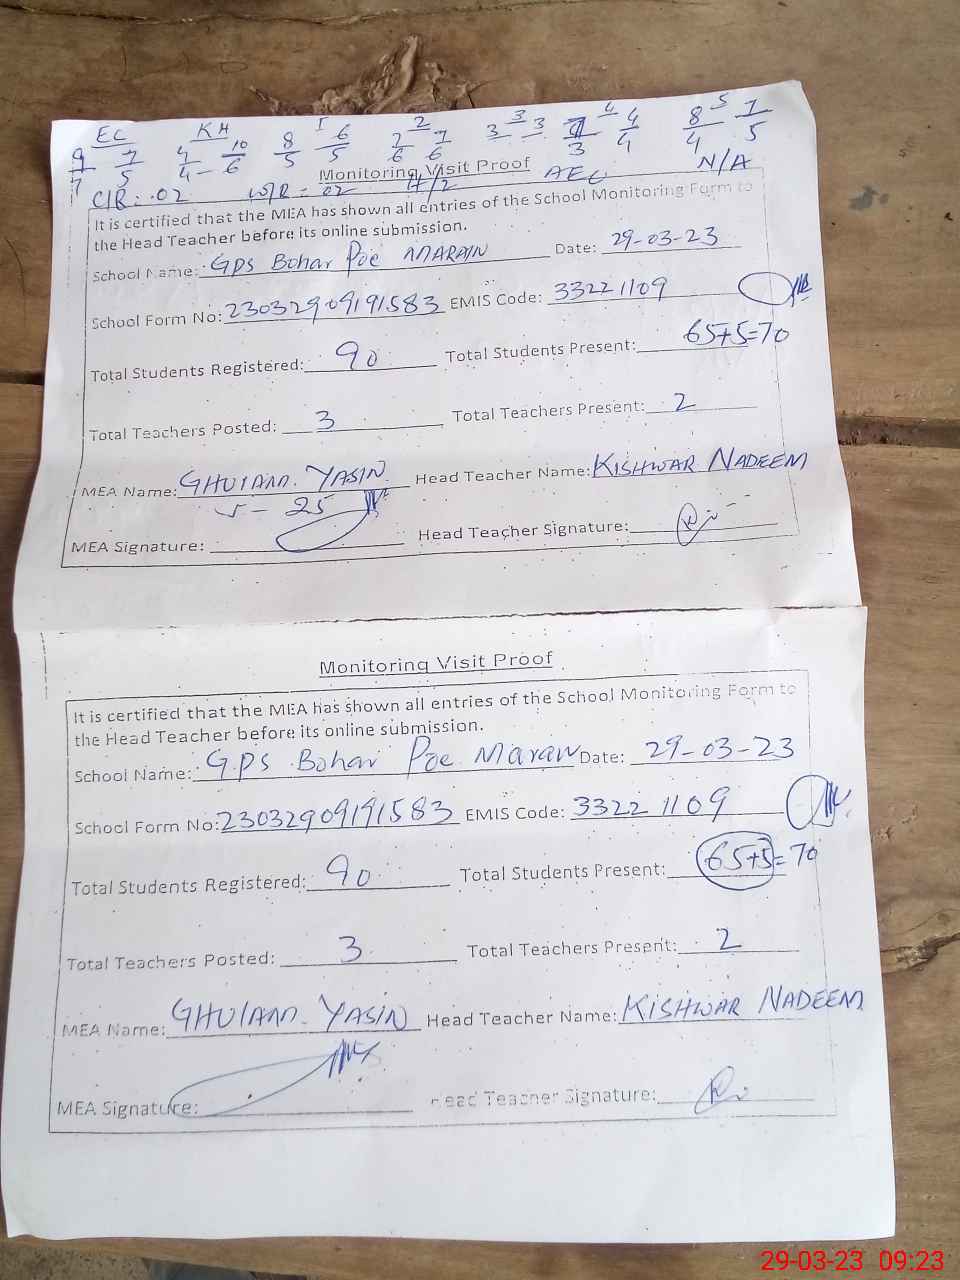 EC KH 1 2 3 4 5
9/7 7/5 4/4 10/6 8/5 6/5 7/6 7/6 3 3 4/3 4/4 8/4 7/5
Monitoring Visit Proof
C/R: 02 W/R = 02 4/2 AEO N/A
It is certified that the MEA has shown all entries of the School Monitoring Form to
the Head Teacher before its online submission.
School Name: GPS Bohar Poe MARAIN Date: 29-03-23
School Form No: 23032909191583 EMIS Code: 33221109
Total Students Registered: 90 Total Students Present: 65+5=70
Total Teachers Posted: 3 Total Teachers Present: 2
MEA Name: GHULAM YASIN Head Teacher Name: KISHWAR NADEEM
25
MEA Signature: Head Teacher Signature:
Monitoring Visit Proof
It is certified that the MEA has shown all entries of the School Monitoring Form to
the Head Teacher before its online submission.
School Name: GPS Bohar Poe Marain Date: 29-03-23
School Form No: 23032909191583 EMIS Code: 33221109
Total Students Registered: 90 Total Students Present: 65+5=70
Total Teachers Posted: 3 Total Teachers Present: 2
MEA Name: GHULAM YASIN Head Teacher Name: KISHWAR NADEEM
MEA Signature: Head Teacher Signature:
29-03-23 09:23